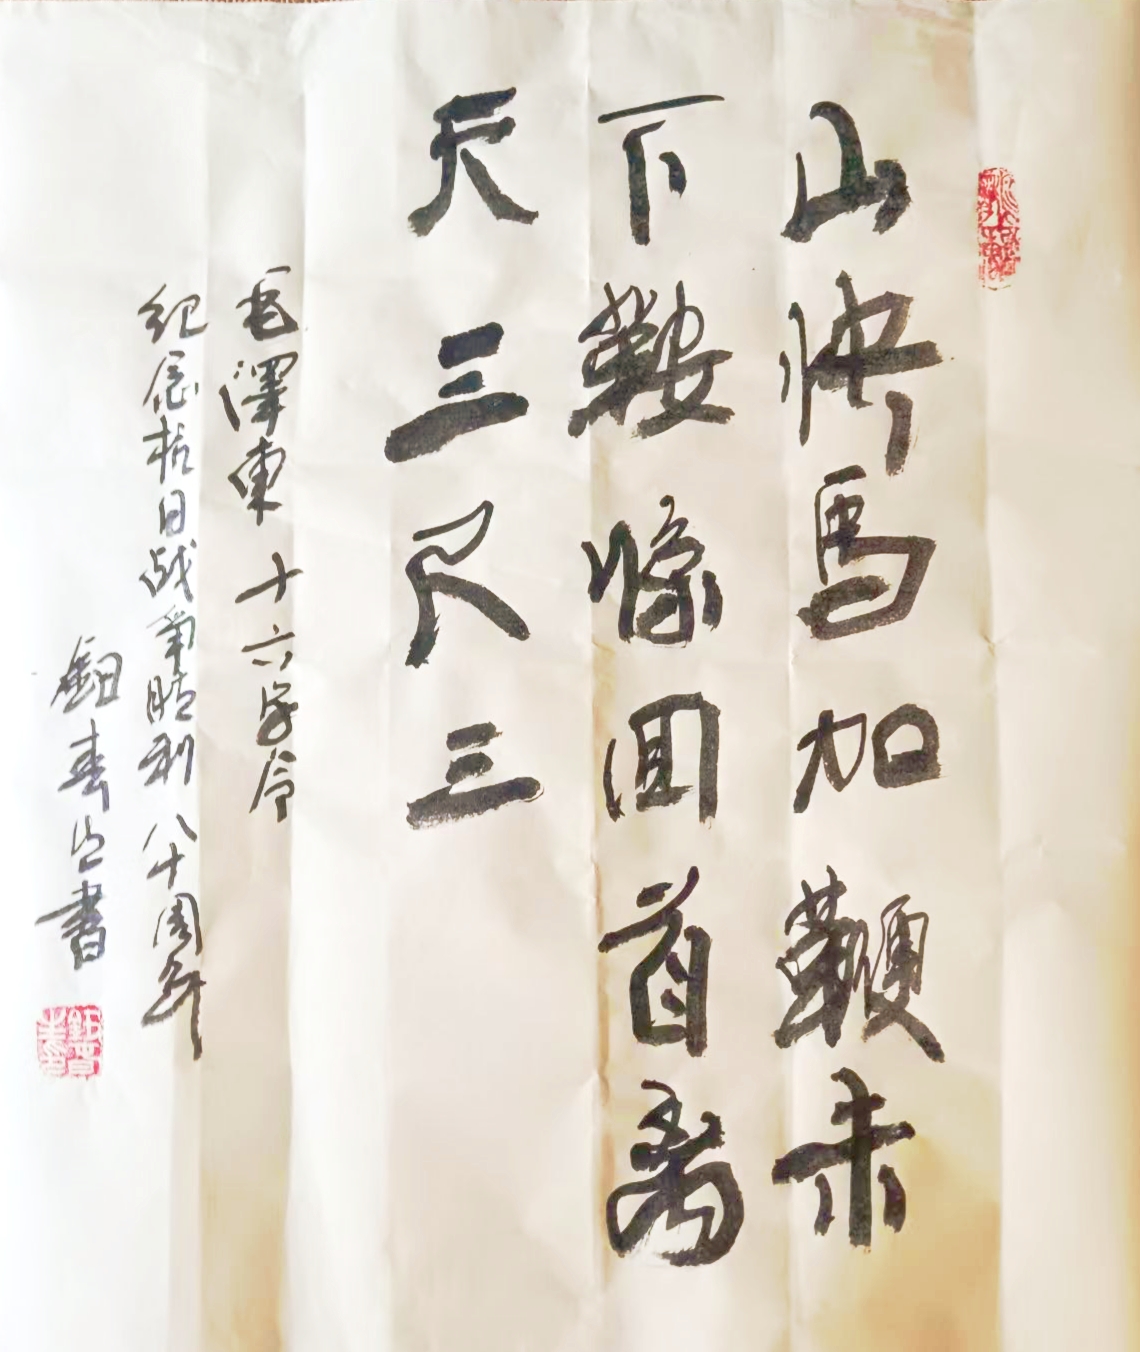 山快馬加鞭未
下鞍惊回首离
天三尺三
毛澤東十六字令
纪念抗日战争勝利八十周年
春 書